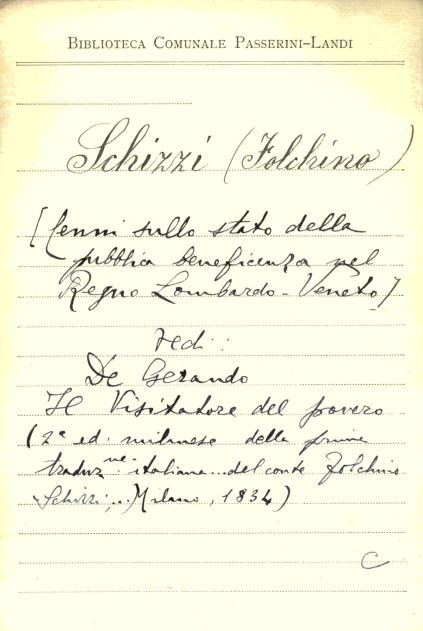 BIBLIOTECA COMUNALE PASSERINI-LANDI
Schizzi (Folchino)
[Cenni sullo stato della
pubblica beneficenza nel
Regno Lombardo-Veneto]
vedi:
De Gerando
Il Visitatore del povero
(2ª ed. milanese della prima
traduz.ne italiana... del conte Folchino
Schizzi... Milano, 1834)
C